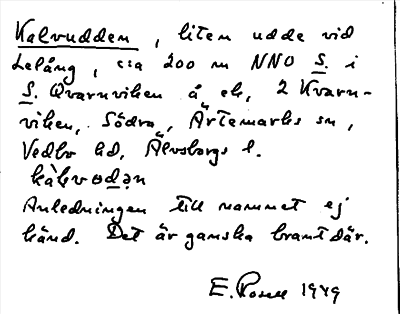 Kalvudden, liten udde vid
Lelång, c:a 200 m NNO S. i
S. Kvarnviken å ek, 2 Kvarn-
viken, Södra, Ärtemarks sn,
Vedbo hd, Älvsborgs l.
Anledningen till namnet ej
känd. Det är ganska brant där.
E. Rosell 1949